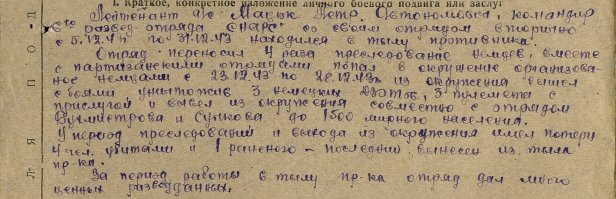 I. Краткое, конкретное изложение личного боевого подвига или заслуг
Лейтенант а/с Мацук Петр Автономович, командир
6го развед. отряда "СНАРС" со своим отрядом вторично
с 5.12.43 по 31.12.43 находился в тылу противника.
Отряд переносил 4 раза преследование немцев, вместе
с партизанскими отрядами попал в окружение организован-
ное немцами с 23.12.43 по 28.12.43г. из окружения вышел
с боями уничтожив 3 немецких ДЗОТов, 3 пулемета с
прислугой и вывел из окружения совместно с отрядом
Бурмистрова и Сучкова до 1500 мирного населения.
У период преследований и выхода из окружения имел потери
4 чел. убитыми и 1 раненого - последний вынесен из тыла
пр-ка.
За период работы в тылу пр-ка отряд дал много
ценных разведданных.
Л Я П О Д